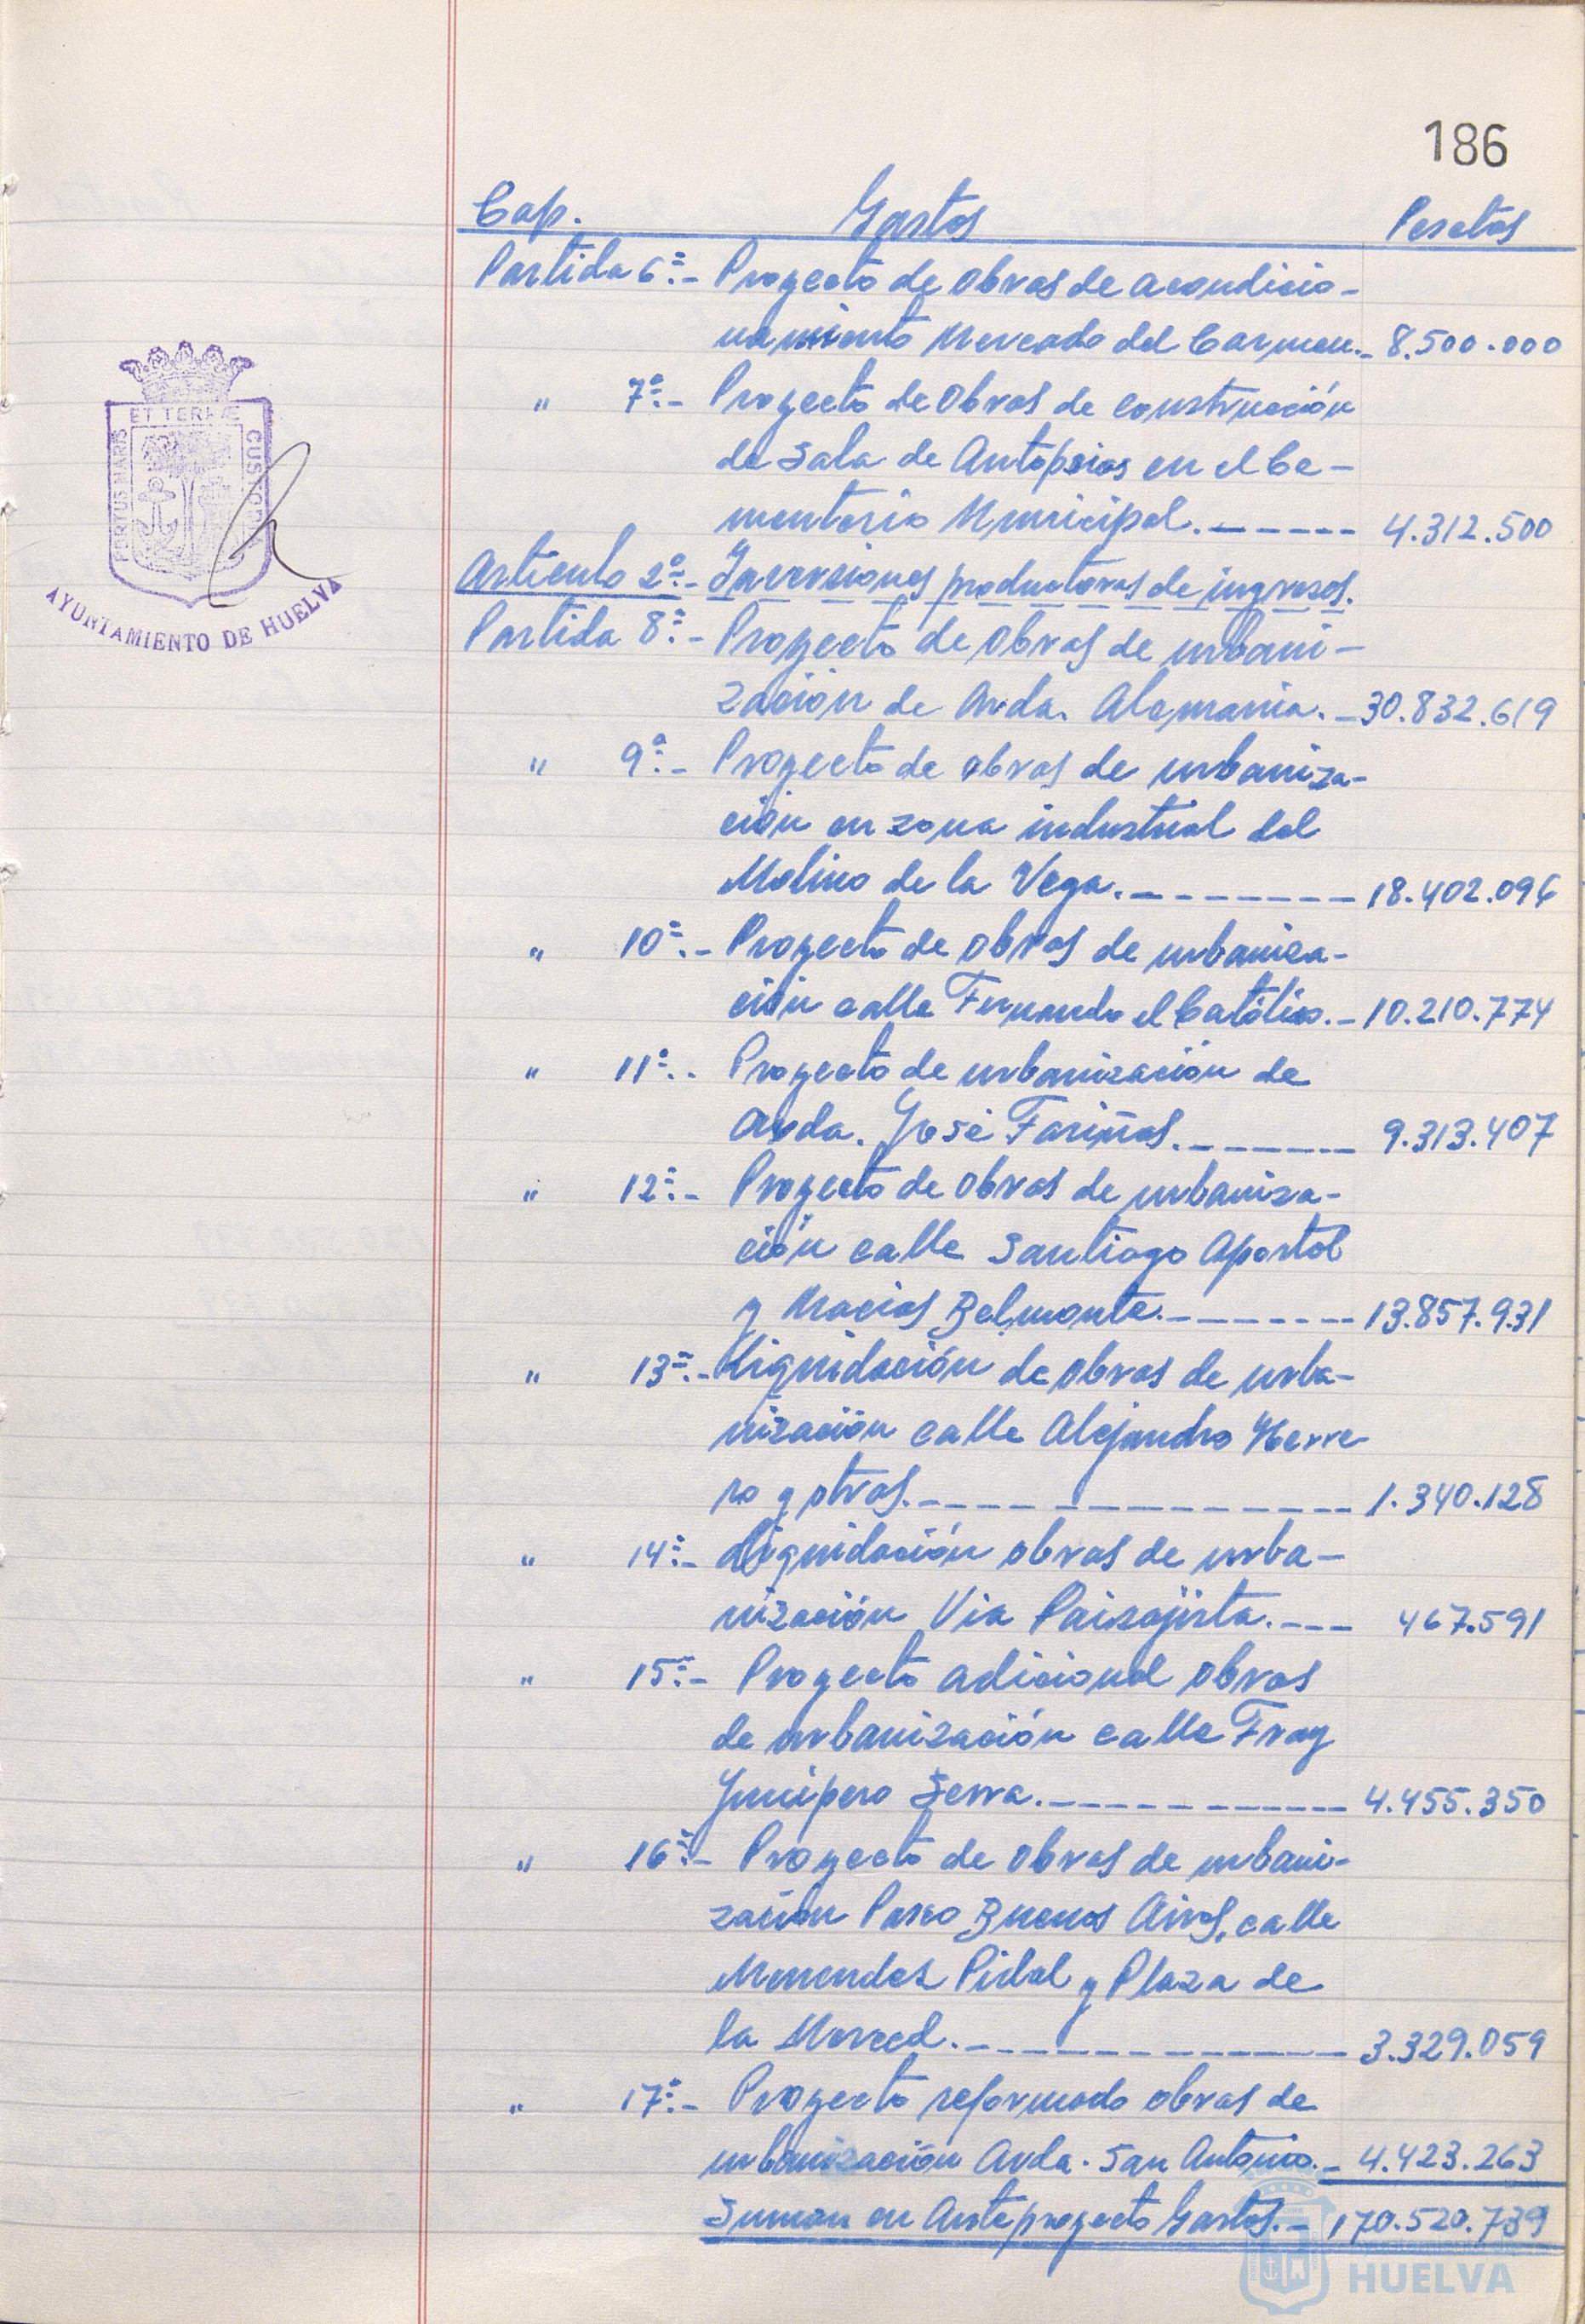 186
Cap. Gastos Pesetas
Partida 6ª.- Proyecto de obras de acondicio-
namiento Mercado del Carmen.- 8.500.000
" 7ª.- Proyecto de obras de construcción
de Sala de Autopsias en el Ce-
menterio Municipal.------ 4.312.500
Artículo 2º.- Inversiones productoras de ingresos.
Partida 8ª.- Proyecto de obras de urbani-
zación de Avda. Alemania.- 30.832.619
" 9ª.- Proyecto de obras de urbaniza-
ción en zona industrial del
Molino de la Vega.-------- 18.402.096
" 10ª.- Proyecto de obras de urbaniza-
ción calle Fernando el Católico.- 10.210.774
" 11ª.. Proyecto de urbanización de
Avda. José Fariñas.------- 9.313.407
" 12ª.- Proyecto de obras de urbaniza-
ción calle Santiago Apostol
y Macias Belmonte.-------- 13.857.931
" 13ª.- Liquidación de obras de urba-
nización calle Alejandro Herre
ro y otras.--------------- 1.340.128
" 14ª.- Liquidación obras de urba-
nización Via Paisajista.--- 467.591
" 15ª.- Proyecto adicional obras
de urbanización calle Fray
Junipero Serra.------------ 4.455.350
" 16ª.- Proyecto de obras de urbani-
zación Paseo Buenos Aires, calle
Menendez Pidal y Plaza de
la Merced.--------------- 3.329.059
" 17ª.- Proyecto reformado obras de
urbanización Avda. San Antonio.- 4.423.263
Suman en Anteproyecto Gastos.- 170.520.739
PORTUS MARIS ET TERRÆ CUSTODIA
AYUNTAMIENTO DE HUELVA
HUELVA